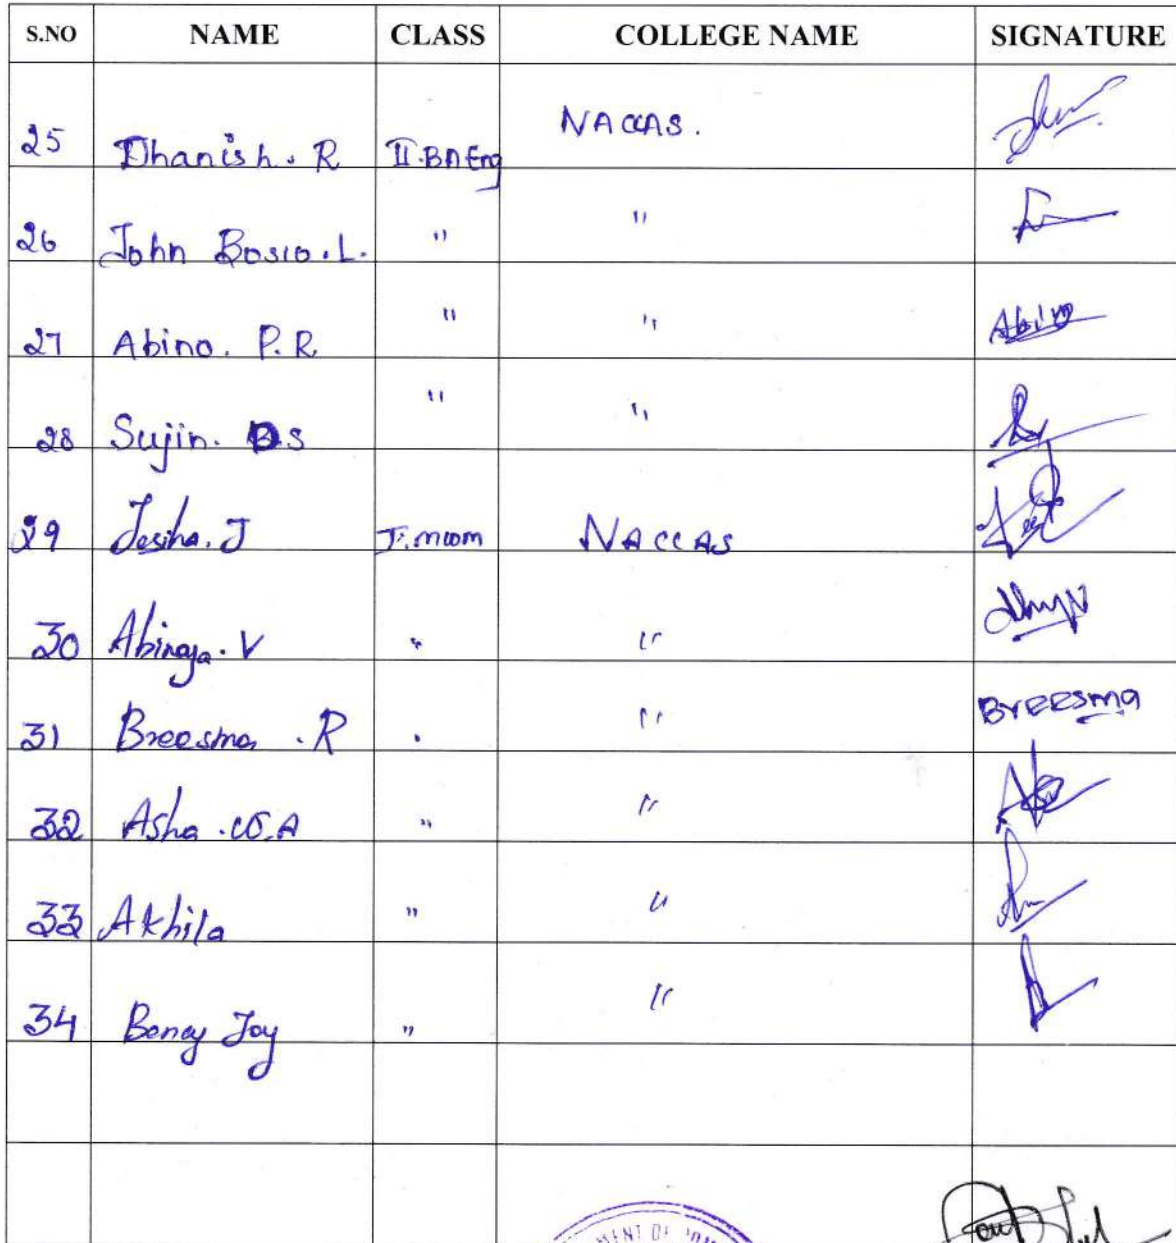 S.NO NAME CLASS COLLEGE NAME SIGNATURE
25 Dhanish. R II.BA Eng NACCAS.
26 John Bosco. L. " "
27 Abino. P.R " " Abino
28 Sujin. S " "
29 Jesiha. J NACCAS
30 Abinaya. V " "
31 Breesma . R " Breesma
32 Asha . A " "
33 Akhila " "
34 Joy " "
MENT OF COM